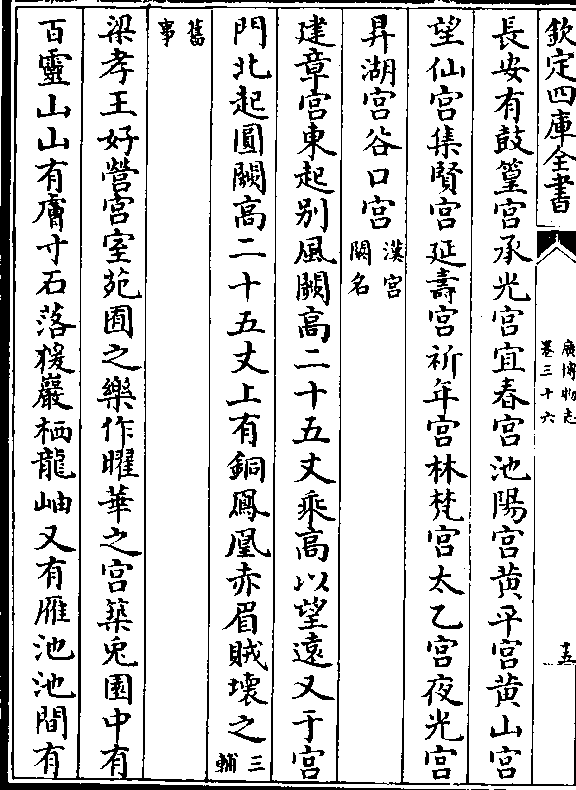 欽定四庫全書
廣博物志
卷三十六
十五
長安有鼓篁宮承光宮宜春宮池陽宮黄平宮黄山宮
望仙宮集賢宮延壽宮祈年宮林梵宮太乙宮夜光宮
昇湖宮谷口宮漢宮闕名
建章宮東起别風闕高二十五丈乘髙以望遠又于宮
門北起圓闕高二十五丈上有銅鳳凰赤眉賊壞之三輔
舊事
梁孝王好營宮室苑囿之樂作曜華之宮築兎園中有
百靈山山有膚寸石落猨巖栖龍岫又有雁池池間有